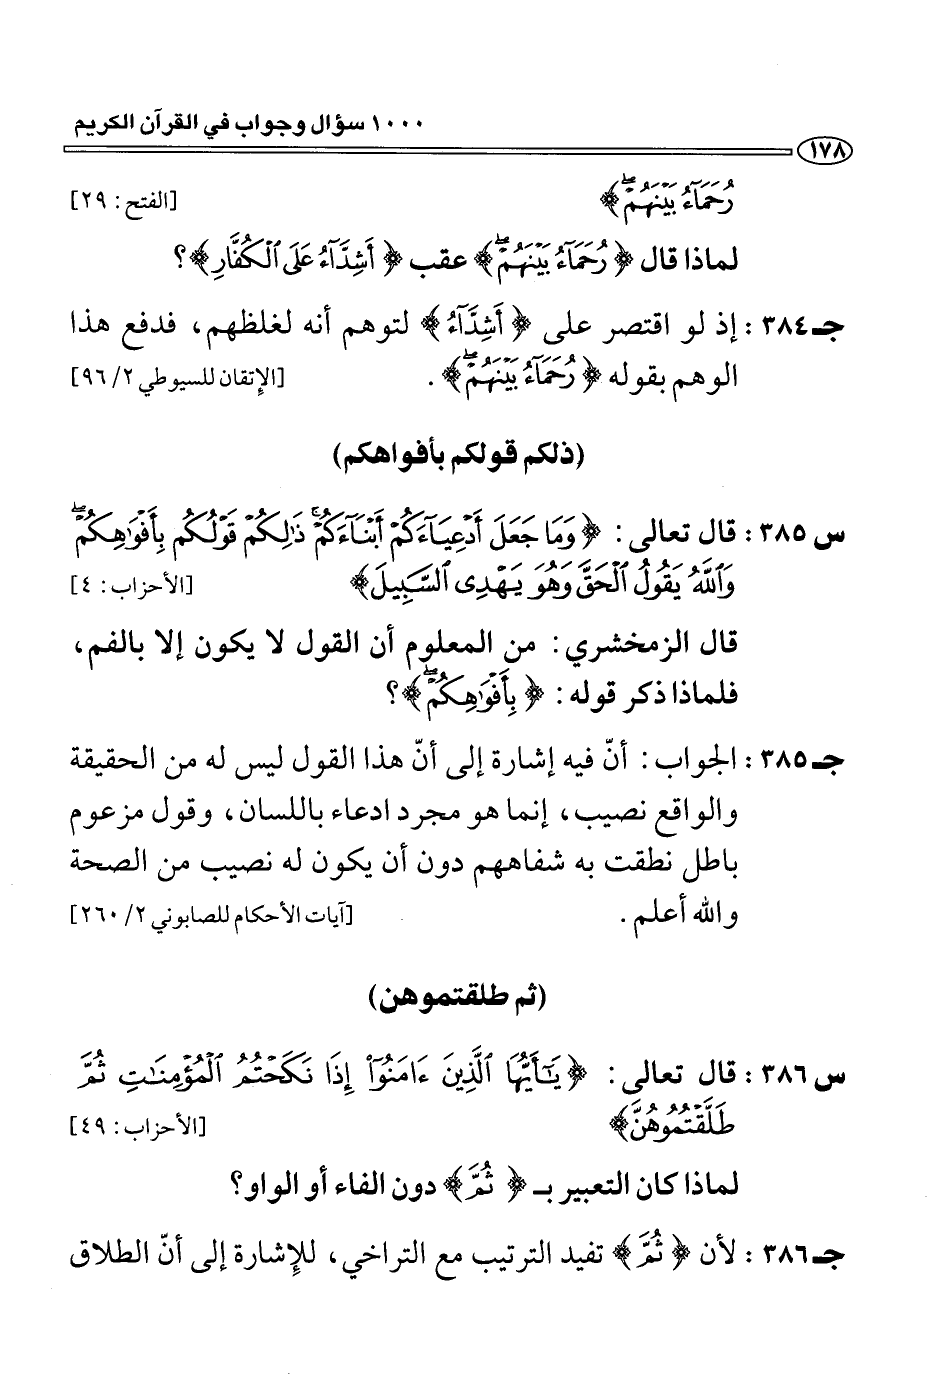 ١٠٠٠ سؤال وجواب في القرآن الكريم
١٧٨
رُحَمَآءُ بَيْنَهُمْ ۖ﴾ [الفتح: ٢٩]
لماذا قال ﴿ رُحَمَآءُ بَيْنَهُمْ ۖ﴾ عقب ﴿ أَشِدَّآءُ عَلَى ٱلْكُفَّارِ﴾؟
جـ ٣٨٤ : إذ لو اقتصر على ﴿ أَشِدَّآءُ﴾ لتوهم أنه لغلظهم، فدفع هذا
الوهم بقوله ﴿ رُحَمَآءُ بَيْنَهُمْ ۖ﴾ . [الإتقان للسيوطي ٢/ ٩٦]
(ذلكم قولكم بأفواهكم)
س ٣٨٥ : قال تعالى: ﴿ وَمَا جَعَلَ أَدْعِيَآءَكُمْ أَبْنَآءَكُمْ ۚ ذَٰلِكُمْ قَوْلُكُم بِأَفْوَٰهِكُمْ ۖ
وَٱللَّهُ يَقُولُ ٱلْحَقَّ وَهُوَ يَهْدِى ٱلسَّبِيلَ﴾ [الأحزاب: ٤]
قال الزمخشري: من المعلوم أن القول لا يكون إلا بالفم،
فلماذا ذكر قوله: ﴿ بِأَفْوَٰهِكُمْ ۖ﴾؟
جـ ٣٨٥ : الجواب: أنّ فيه إشارة إلى أنّ هذا القول ليس له من الحقيقة
والواقع نصيب، إنما هو مجرد ادعاء باللسان، وقول مزعوم
باطل نطقت به شفاههم دون أن يكون له نصيب من الصحة
والله أعلم. [آيات الأحكام للصابوني ٢/ ٢٦٠]
(ثم طلقتموهن)
س ٣٨٦ : قال تعالى: ﴿ يَٰٓأَيُّهَا ٱلَّذِينَ ءَامَنُوٓا۟ إِذَا نَكَحْتُمُ ٱلْمُؤْمِنَٰتِ ثُمَّ
طَلَّقْتُمُوهُنَّ﴾ [الأحزاب: ٤٩]
لماذا كان التعبير بـ ﴿ ثُمَّ﴾ دون الفاء أو الواو؟
جـ ٣٨٦ : لأن ﴿ ثُمَّ﴾ تفيد الترتيب مع التراخي، للإشارة إلى أنّ الطلاق